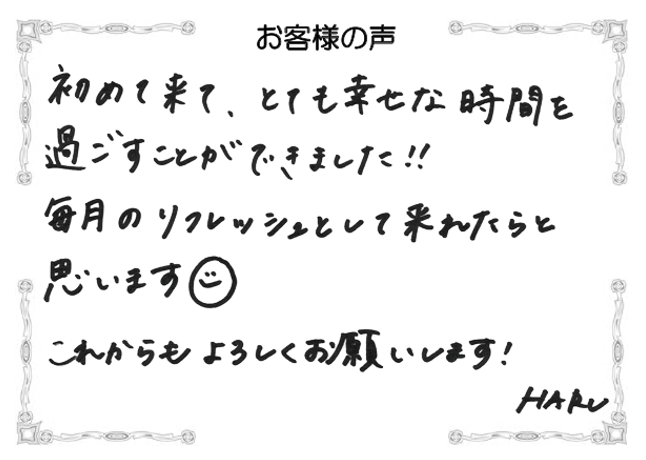 お客様の声
初めて来て、とても幸せな時間を
過ごすことができました!!
毎月のリフレッシュとして来れたらと
思います
これからもよろしくお願いします!
HARU